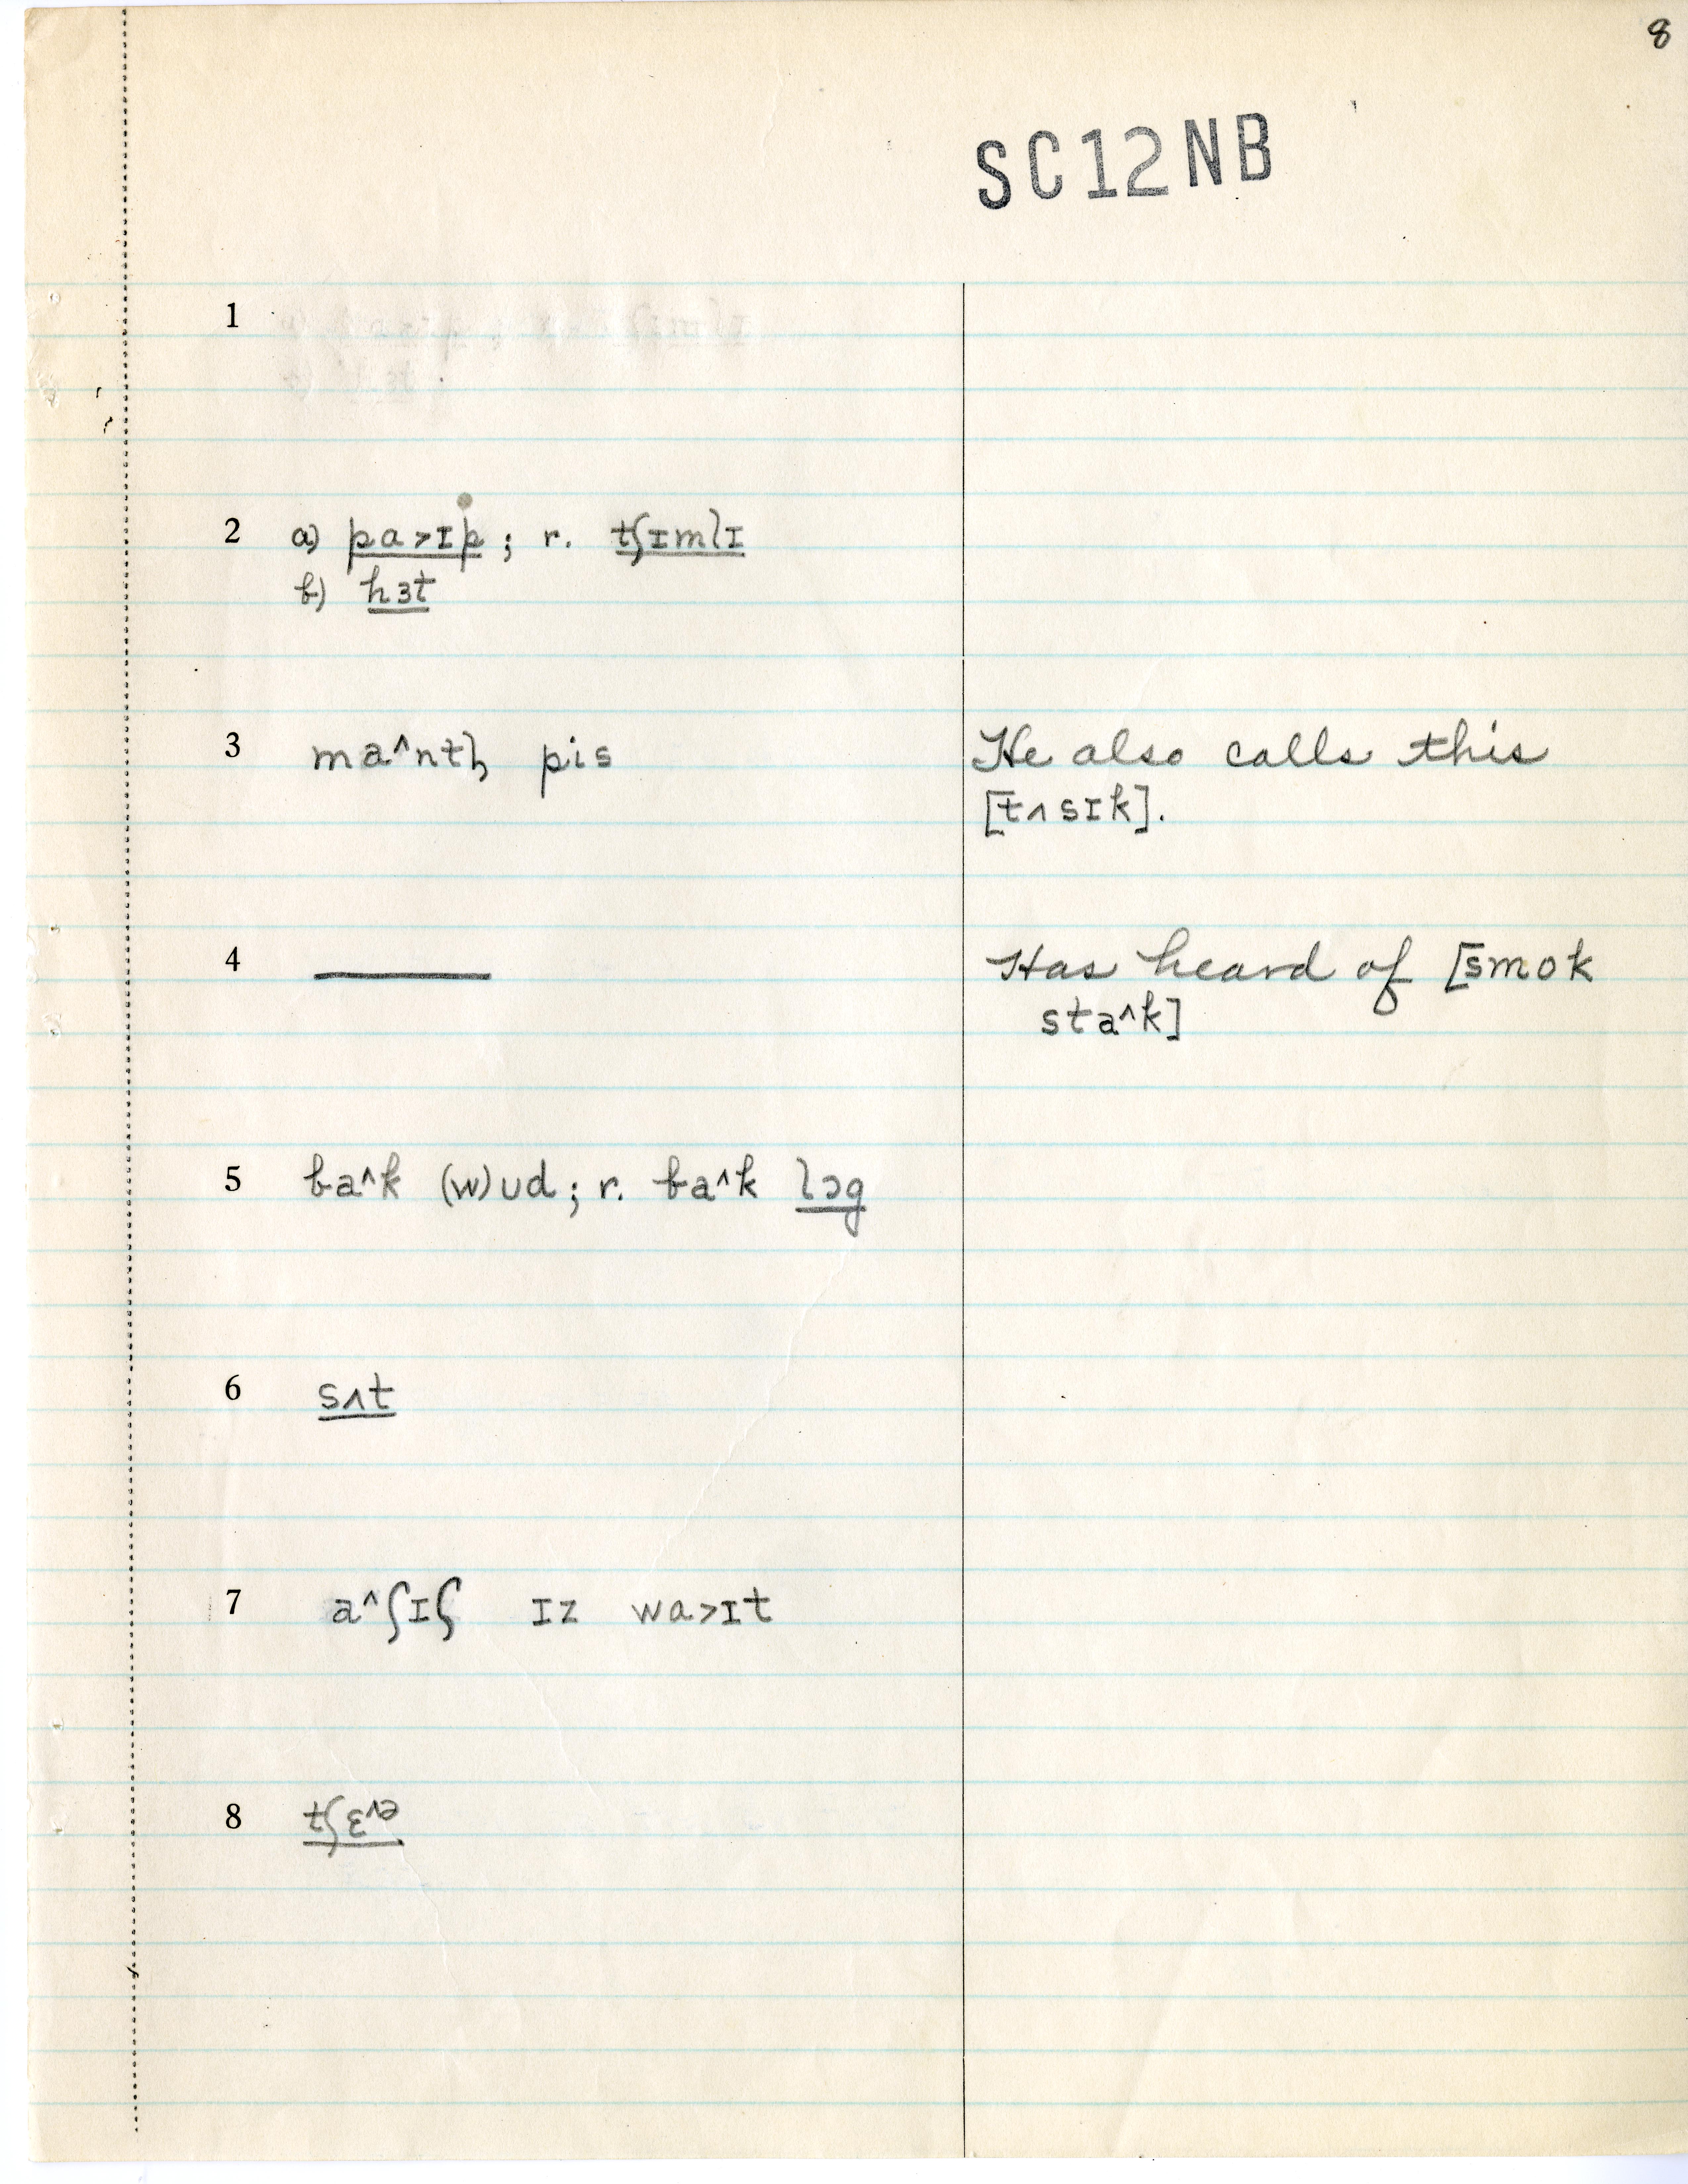 8
SC12NB
1
2 a) pa>ɪp; r. tʃɪmlɪ
b) hɜt
3 ma^ntl̩ pis He also calls this
[tʌsɪk].
4 ——— Has heard of [smok
sta^k]
5 ba^k (w)ʊd; r. ba^k lɔg
6 sʌt
7 a^ʃɪʃ ɪz wa>ɪt
8 tʃɛ^ə